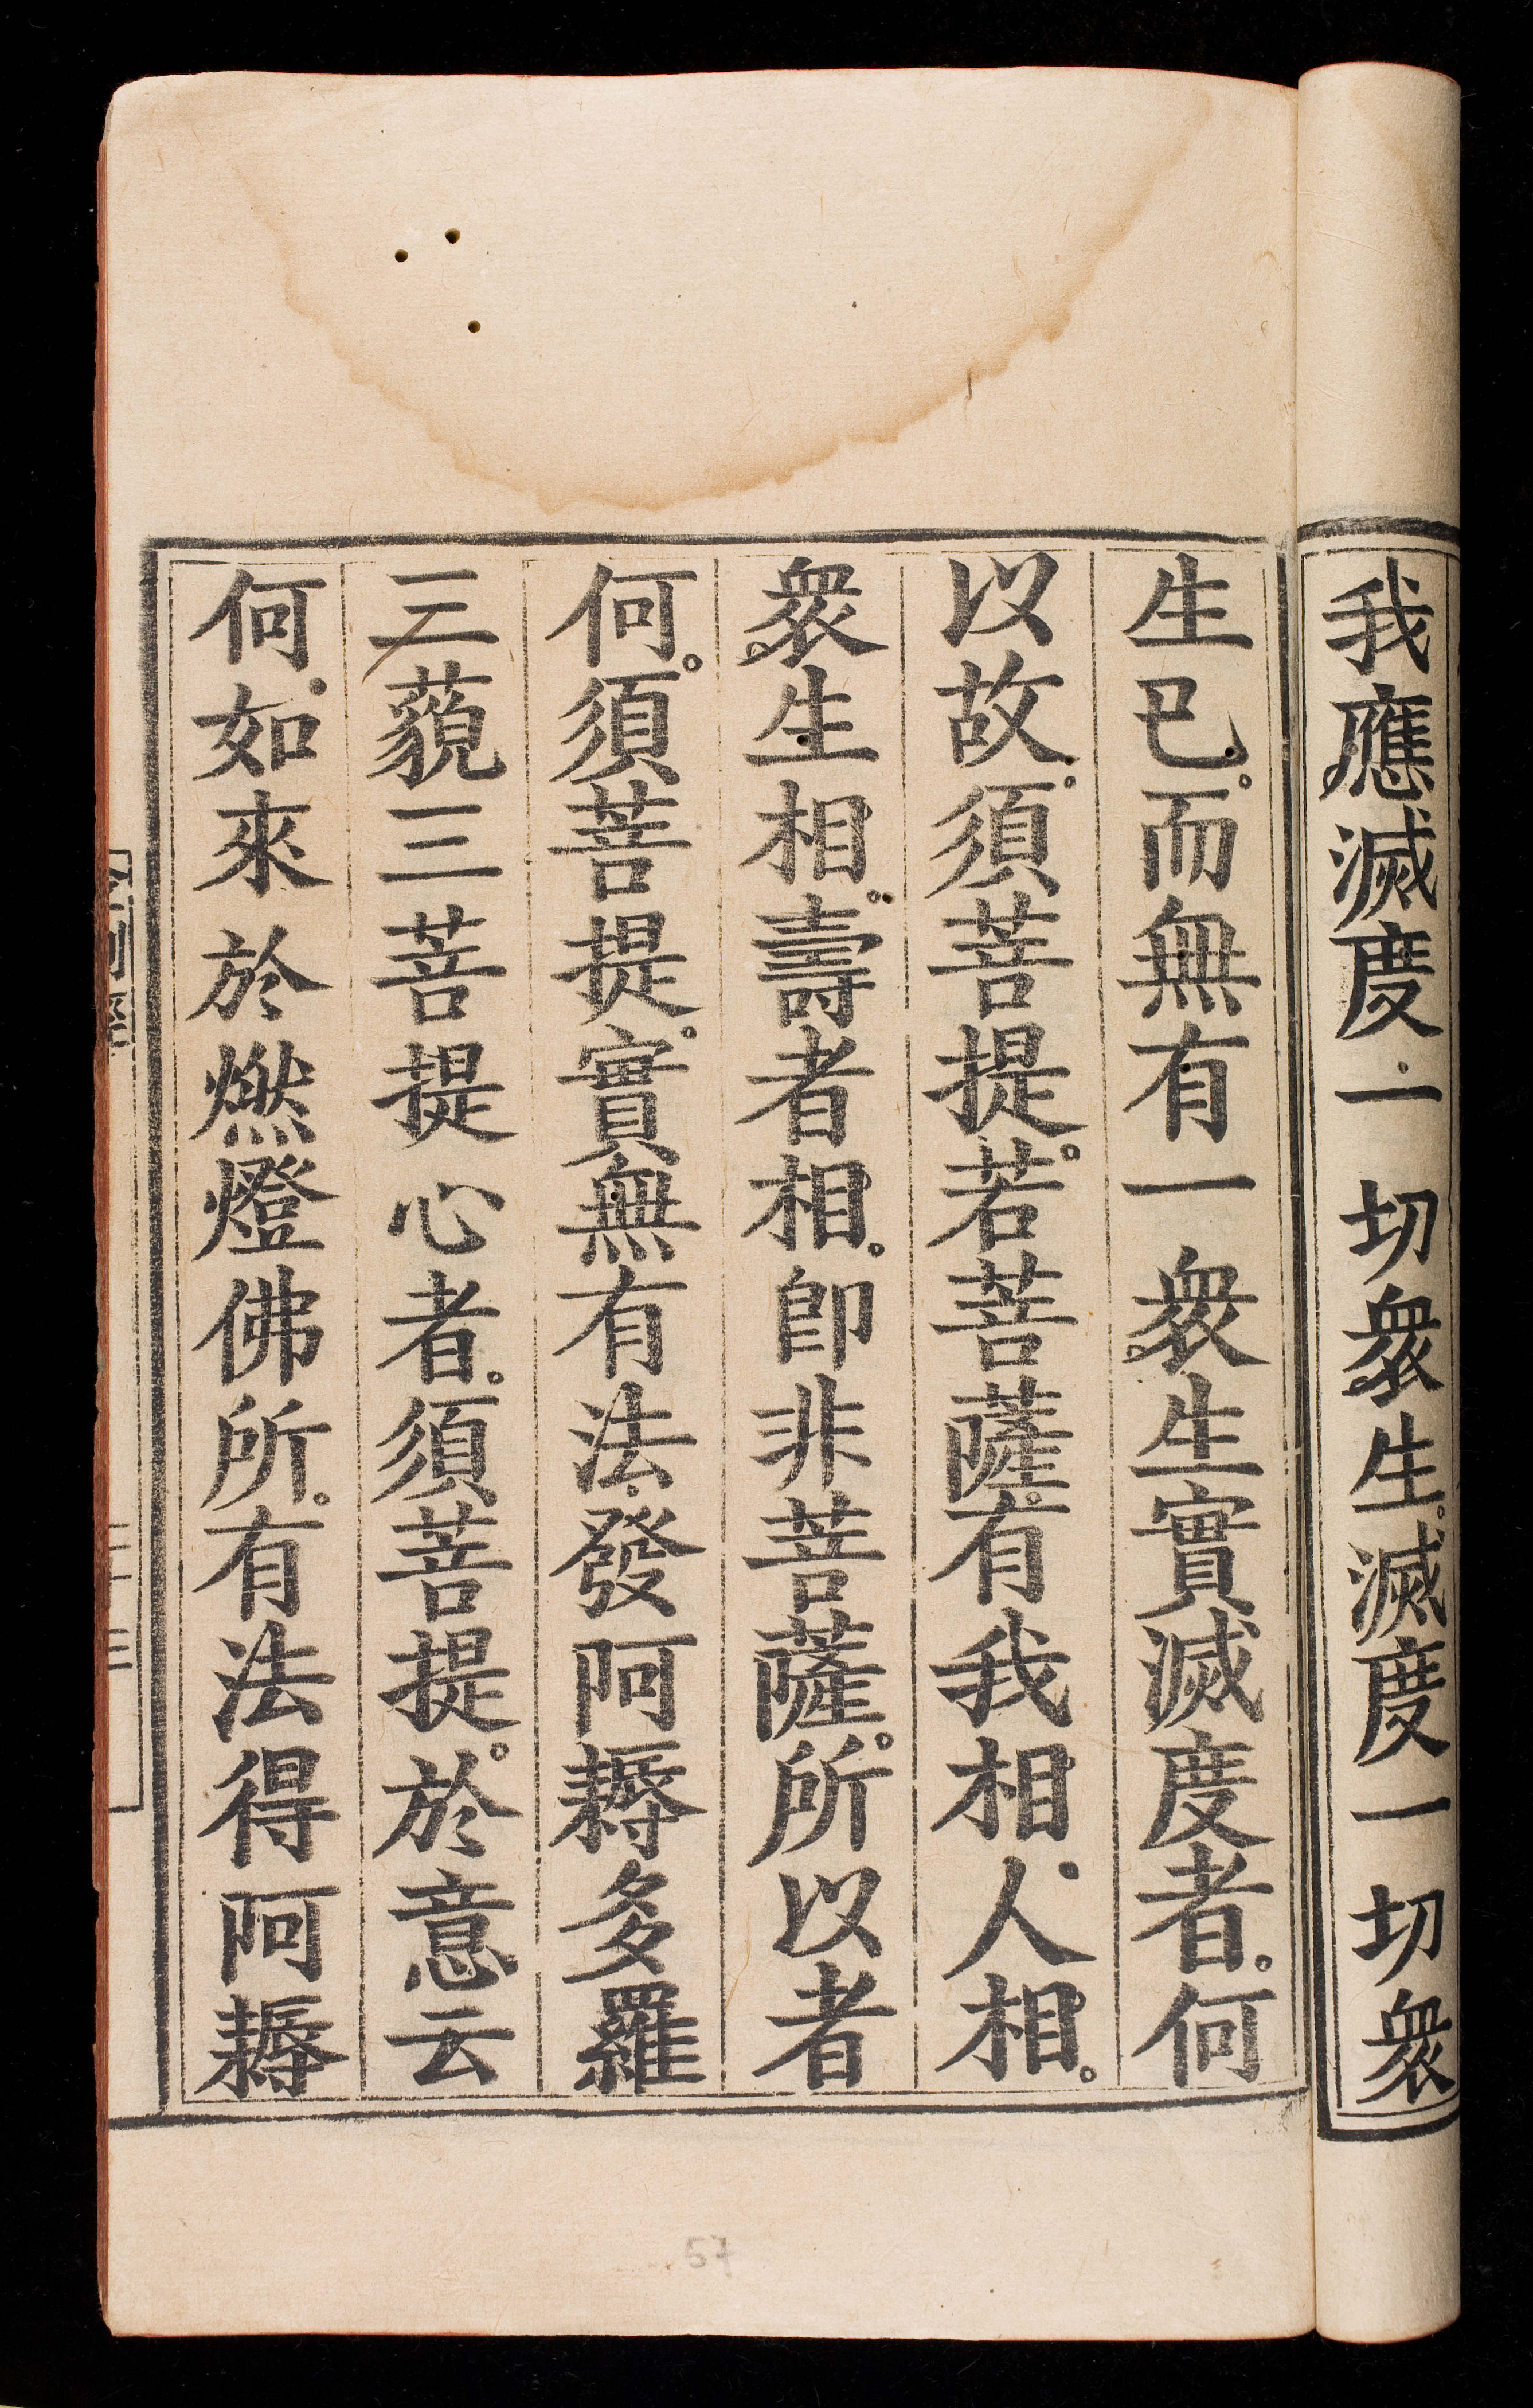 我應滅度一切衆生。滅度一切衆
生已。而無有一衆生實滅度者。何
以故。須菩提。若菩薩。有我相。人相。
衆生相。壽者相。卽非菩薩。所以者
何。須菩提。實無有法。發阿耨多羅
三藐三菩提心者。須菩提。於意云
何。如來於燃燈佛所。有法得阿耨
57